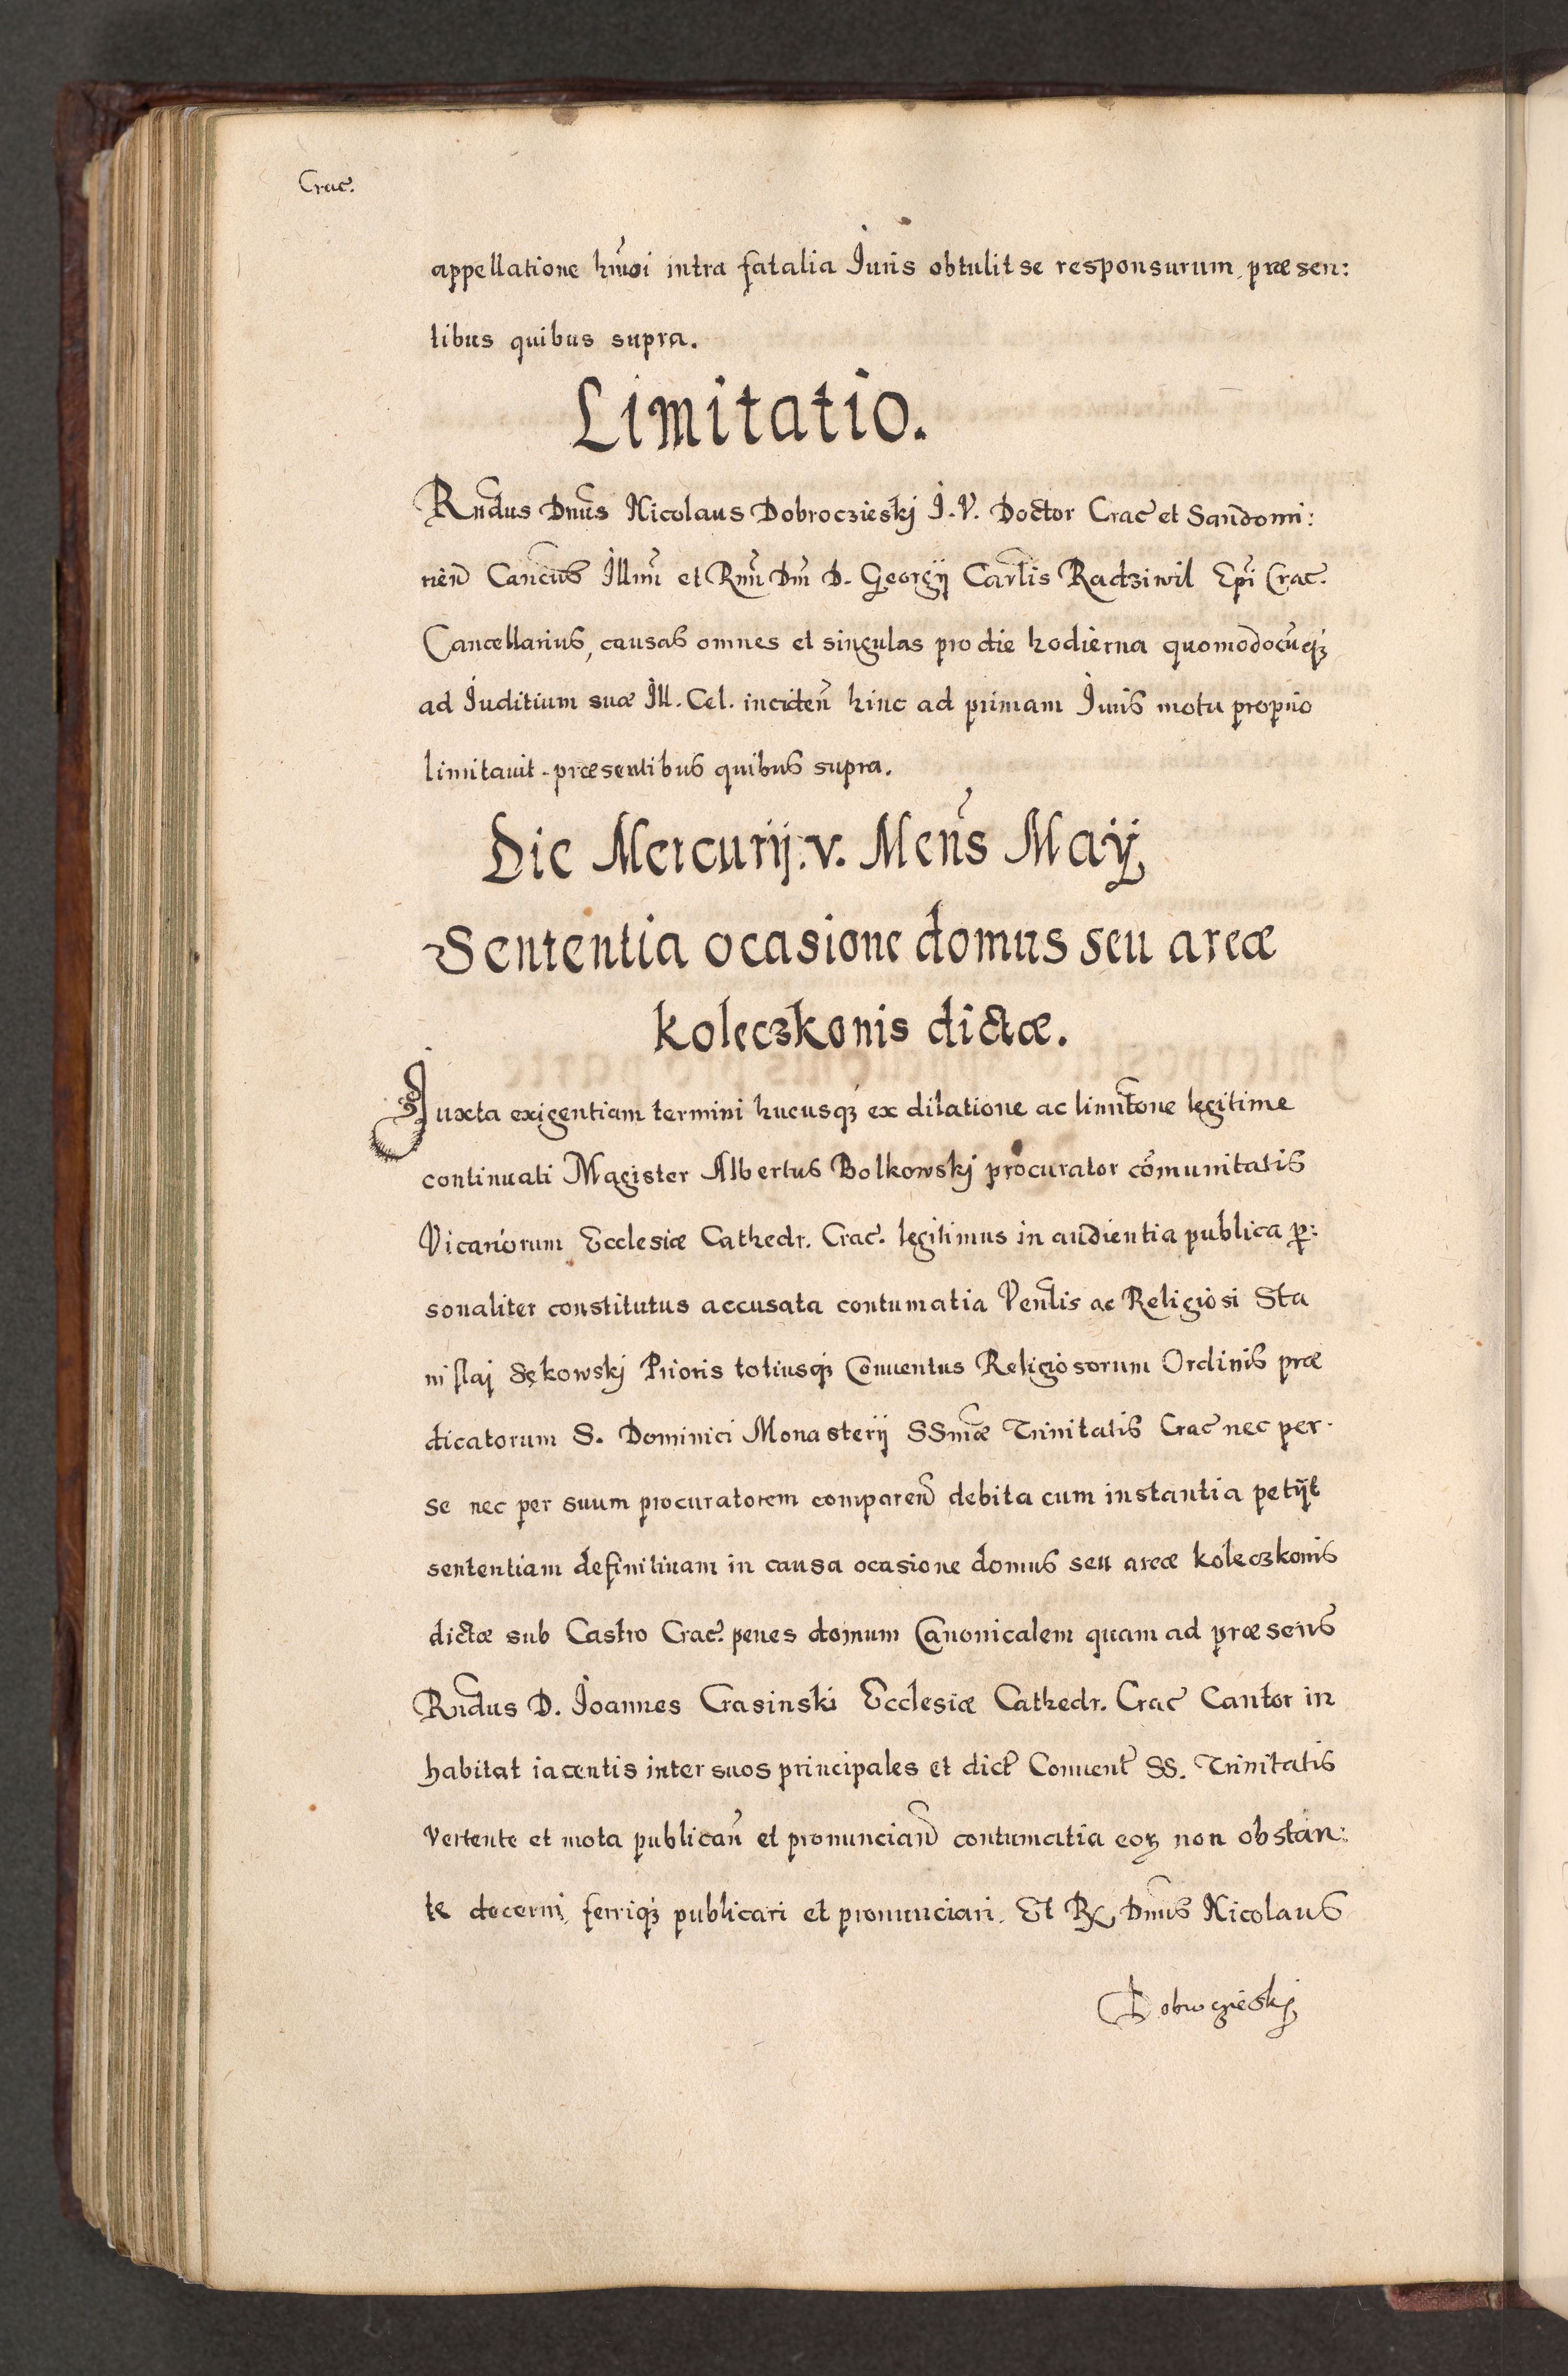 Crac.
appellatione hmoi intra fatalia Iuris obtulit se responsurum. præsen:
tibus quibus supra.
Limitatio.
Rndus Dnus Nicolaus Dobroczieskj I. V. Doctor Crac et Sandomi:
rien Cancus Illmi et Rmi Dni D. Georgij Carlis Radziwil Epi Crac.
Cancellarius, causas omnes et singulas pro die hodierna quomodocūqz
ad Iuditium suæ Ill. Cel. inciden hinc ad primam Iuris motu proprio
limitauit. præsentibus quibus supra.
Die Mercurij. v. Mens Maij
Sententia ocasione domus seu areæ
koleczkonis dictæ.
Iuxta exigentiam termini hucusqz ex dilatione ac limitone legitime
continuati Magister Albertus Bolkowskj procurator cōmunitatis
Vicariorum Ecclesiæ Cathedr. Crac. legitimus in audientia publica p:
sonaliter constitutus accusata contumatia Venlis ac Religiosi Sta
nislaj Sękowskj Prioris totiusqz Conuentus Religiosorum Ordinis præ
dicatorum S. Dominici Monasterij SSmæ Trinitatis Crac nec per
se nec per suum procuratorem comparen debita cum instantia petijt
sententiam definitiuam in causa ocasione domus seu areæ koleczkonis
dictæ sub Castro Crac. penes domum Canonicalem quam ad præsens
Rndus D. Ioannes Crasinski Ecclesiæ Cathedr. Crac Cantor in
habitat iacentis inter suos principales et dict Conuent SS. Trinitatis
vertente et mota publican et pronuncian contumatia eoꝝ non obstan:
te decerni, ferriqz publicari et pronunciari. Et Rx Dnus Nicolaus
Dobroczieskj